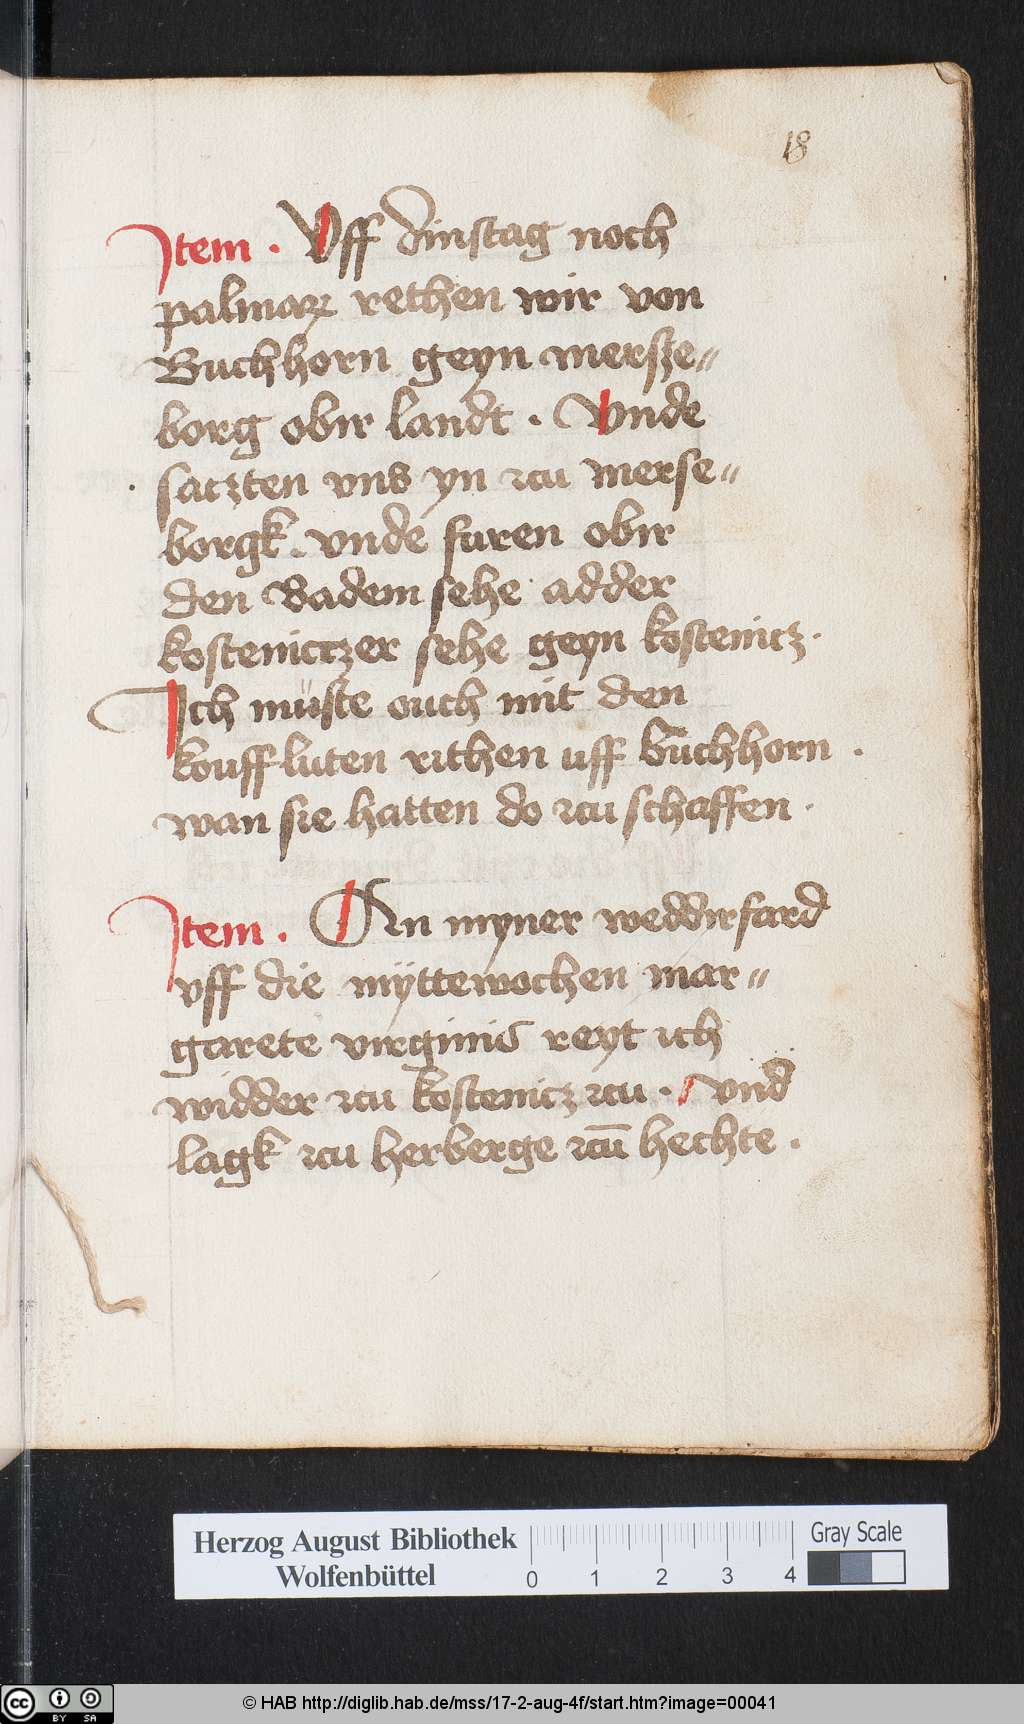 18
Item . Uff dinstag noch
palmarꝫ rethen wir von
Buchhorn geyn mersze〃
borg obir landt . Unde
saczten vns yn zcu merse〃
borgk . vnde furen obir
den Badem sehe adder
kostenictzer sehe geyn kostenicz .
Ich müste ouch mit den
kouffluten rithen uff Buchhorn .
wan sie hatten do zcu schaffen .
Item . An myner weddirfard
vff die mÿttewochen mar〃
garete virginis reyt ich
widder zcu kostenicz zcu . vnd
lagk zcu herberge zcū hechte .
Herzog August Bibliothek
Wolfenbüttel
0 1 2 3 4
Gray Scale
cc BY SA
© HAB http://diglib.hab.de/mss/17-2-aug-4f/start.htm?image=00041